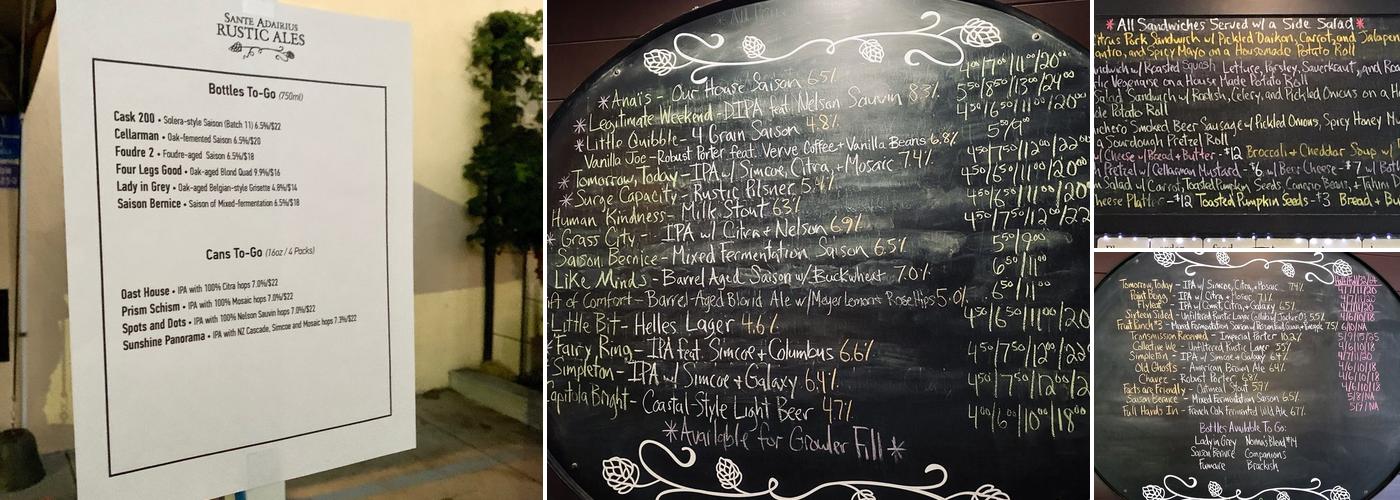 SANTE ADAIRIUS
RUSTIC ALES
Bottles To-Go (750ml)
Cask 200 • Solera-style Saison (Batch 11) 6.5%/$22
Cellarman • Oak-fermented Saison 6.5%/$20
Foudre 2 • Foudre-aged Saison 6.5%/$18
Four Legs Good • Oak-aged Blond Quad 9.9%/$16
Lady in Grey • Oak-aged Belgian-style Grisette 4.8%/$14
Saison Bernice • Saison of Mixed-fermentation 6.5%/$18
Cans To-Go (16oz / 4 Packs)
Oast House • IPA with 100% Citra hops 7.0%/$22
Prism Schism • IPA with 100% Mosaic hops 7.0%/$22
Spots and Dots • IPA with 100% Nelson Sauvin hops 7.0%/$22
Sunshine Panorama • IPA with NZ Cascade, Simcoe and Mosaic hops 7.3%/$22
*Anaïs - Our House Saison 6.5% 4⁰⁰/7⁰⁰/11⁰⁰/20⁰⁰
*Legitimate Weekend - DIPA feat. Nelson Sauvin 8.3% 5⁵⁰/8⁵⁰/13⁰⁰/24⁰⁰
*Little Quibble - 4 Grain Saison 4.8% 4⁰⁰/6⁵⁰/11⁰⁰/20⁰⁰
Vanilla Joe - Robust Porter feat. Verve Coffee + Vanilla Beans 6.8% 5⁵⁰/9⁰⁰
*Tomorrow, Today - IPA w/ Simcoe, Citra, + Mosaic 7.4% 4⁵⁰/7⁵⁰/12⁰⁰/22
*Surge Capacity - Rustic Pilsner 4⁰⁰/6⁵⁰/11⁰⁰/20⁰⁰
Human Kindness - Milk Stout 6.3% 4⁰⁰/6⁵⁰/11⁰⁰/20
*Grass City - IPA w/ Citra + Nelson 6.9% 4⁵⁰/7⁵⁰/12⁰⁰/22
Saison Bernice - Mixed Fermentation Saison 6.5% 5⁵⁰/9⁰⁰
Like Minds - Barrel Aged Saison w/ Buckwheat 7.0% 6⁵⁰/11⁰⁰
of Comfort - Barrel-Aged Blond Ale w/ Meyer Lemon + Rose Hips 5.0% 6⁵⁰/11⁰⁰
Little Bit - Helles Lager 4.6% 4⁰⁰/6⁵⁰/11⁰⁰/20
Fairy Ring - IPA feat. Simcoe + Columbus 6.6% 4⁵⁰/7⁵⁰/12⁰⁰/22
Simpleton - IPA w/ Simcoe + Galaxy 6.4% 4⁵⁰/7⁵⁰/12⁰⁰/2
Capitola Bright - Coastal-Style Light Beer 4.7% 4⁰⁰/6⁰⁰/10⁰⁰/18⁰⁰
*Available for Growler Fill*
*All Sandwiches Served w/ a Side Salad*
Citrus Pork Sandwich w/ Pickled Daikon, Carrot, and Jalapen
antro, and Spicy Mayo on a Housemade Potato Roll
ndwich w/ Roasted Squash Lettuce, Parsley, Sauerkraut, and Roa
ic Vegenaise on a House Made Potato Roll
Salad Sandwich w/ Radish, Celery, and Pickled Onions on a H
de Potato Roll
chero Smoked Beer Sausage w/ Pickled Onions, Spicy Honey Mu
a Sourdough Pretzel Roll
w/ Cheese w/ Bread + Butter - $12 Broccoli + Cheddar Soup w/
Pretzel w/ Cellarman Mustard - $6, w/ Beer Cheese - $7
Salad w/ Carrot, Toasted Pumpkin Seeds,
heese Platter - $12 Toasted Pumpkin Seeds - $3 Bread + Bu
Tomorrow, Today - IPA w/ Simcoe, Citra, + Mosaic 7.4%
Point Being - IPA w/ Citra + Mosaic 7.1% 4/7/11/20
Flyleaf - IPA w/ Comet, Citra, + Galaxy 6.5% 4/7/11/20
Sixteen Sided - Unfiltered Rustic Lager 5.5% 4/6/10/18
Fruit Punch #3 - Mixed Fermentation Saison 6/10/NA
Transmission Received - Imperial Porter 10.2%
Collective We - Unfiltered Rustic Lager 5.5% 4/6/10/18
Simpleton - IPA w/ Simcoe + Galaxy 6.4% 4/7/11/20
Old Ghosts - American Brown Ale 6.4% 4/6/10/18
Chavez - Robust Porter 6.8% 4/6/10/18
Facts are Friendly - Oatmeal Stout 5.9% 4/6/10/18
Saison Bernice - Mixed Fermentation Saison 6.5% 5/8/NA
Full Hands In - French Oak Fermented Wild Ale 6.7% 5/9/NA
Bottles Available To Go:
Lady in Grey Nonna's Blend #14
Saison Bernice Companions
Fumaire Brackish